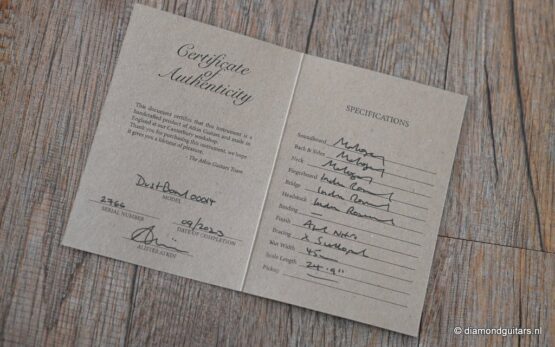 Certificate
of
Authenticity
This document certifies that this instrument is a
handcrafted product of Atkin Guitars and made in
England at our Canterbury workshop.
Thank you for purchasing this instrument, we hope
it gives you a lifetime of pleasure.
The Atkin Guitars Team
MODEL
2766
SERIAL NUMBER
09/2023
DATE OF COMPLETION
ALISTER ATKIN
SPECIFICATIONS
Soundboard Mahogany
Back & Sides Mahogany
Neck Mahogany
Fingerboard Indian Rosewood
Bridge Indian Rosewood
Headstock Indian Rosewood
Binding —
Finish Aged Nitro
Bracing X Scalloped
Nut Width 45mm
Scale Length 24.9"
Pickup
© diamondguitars.nl